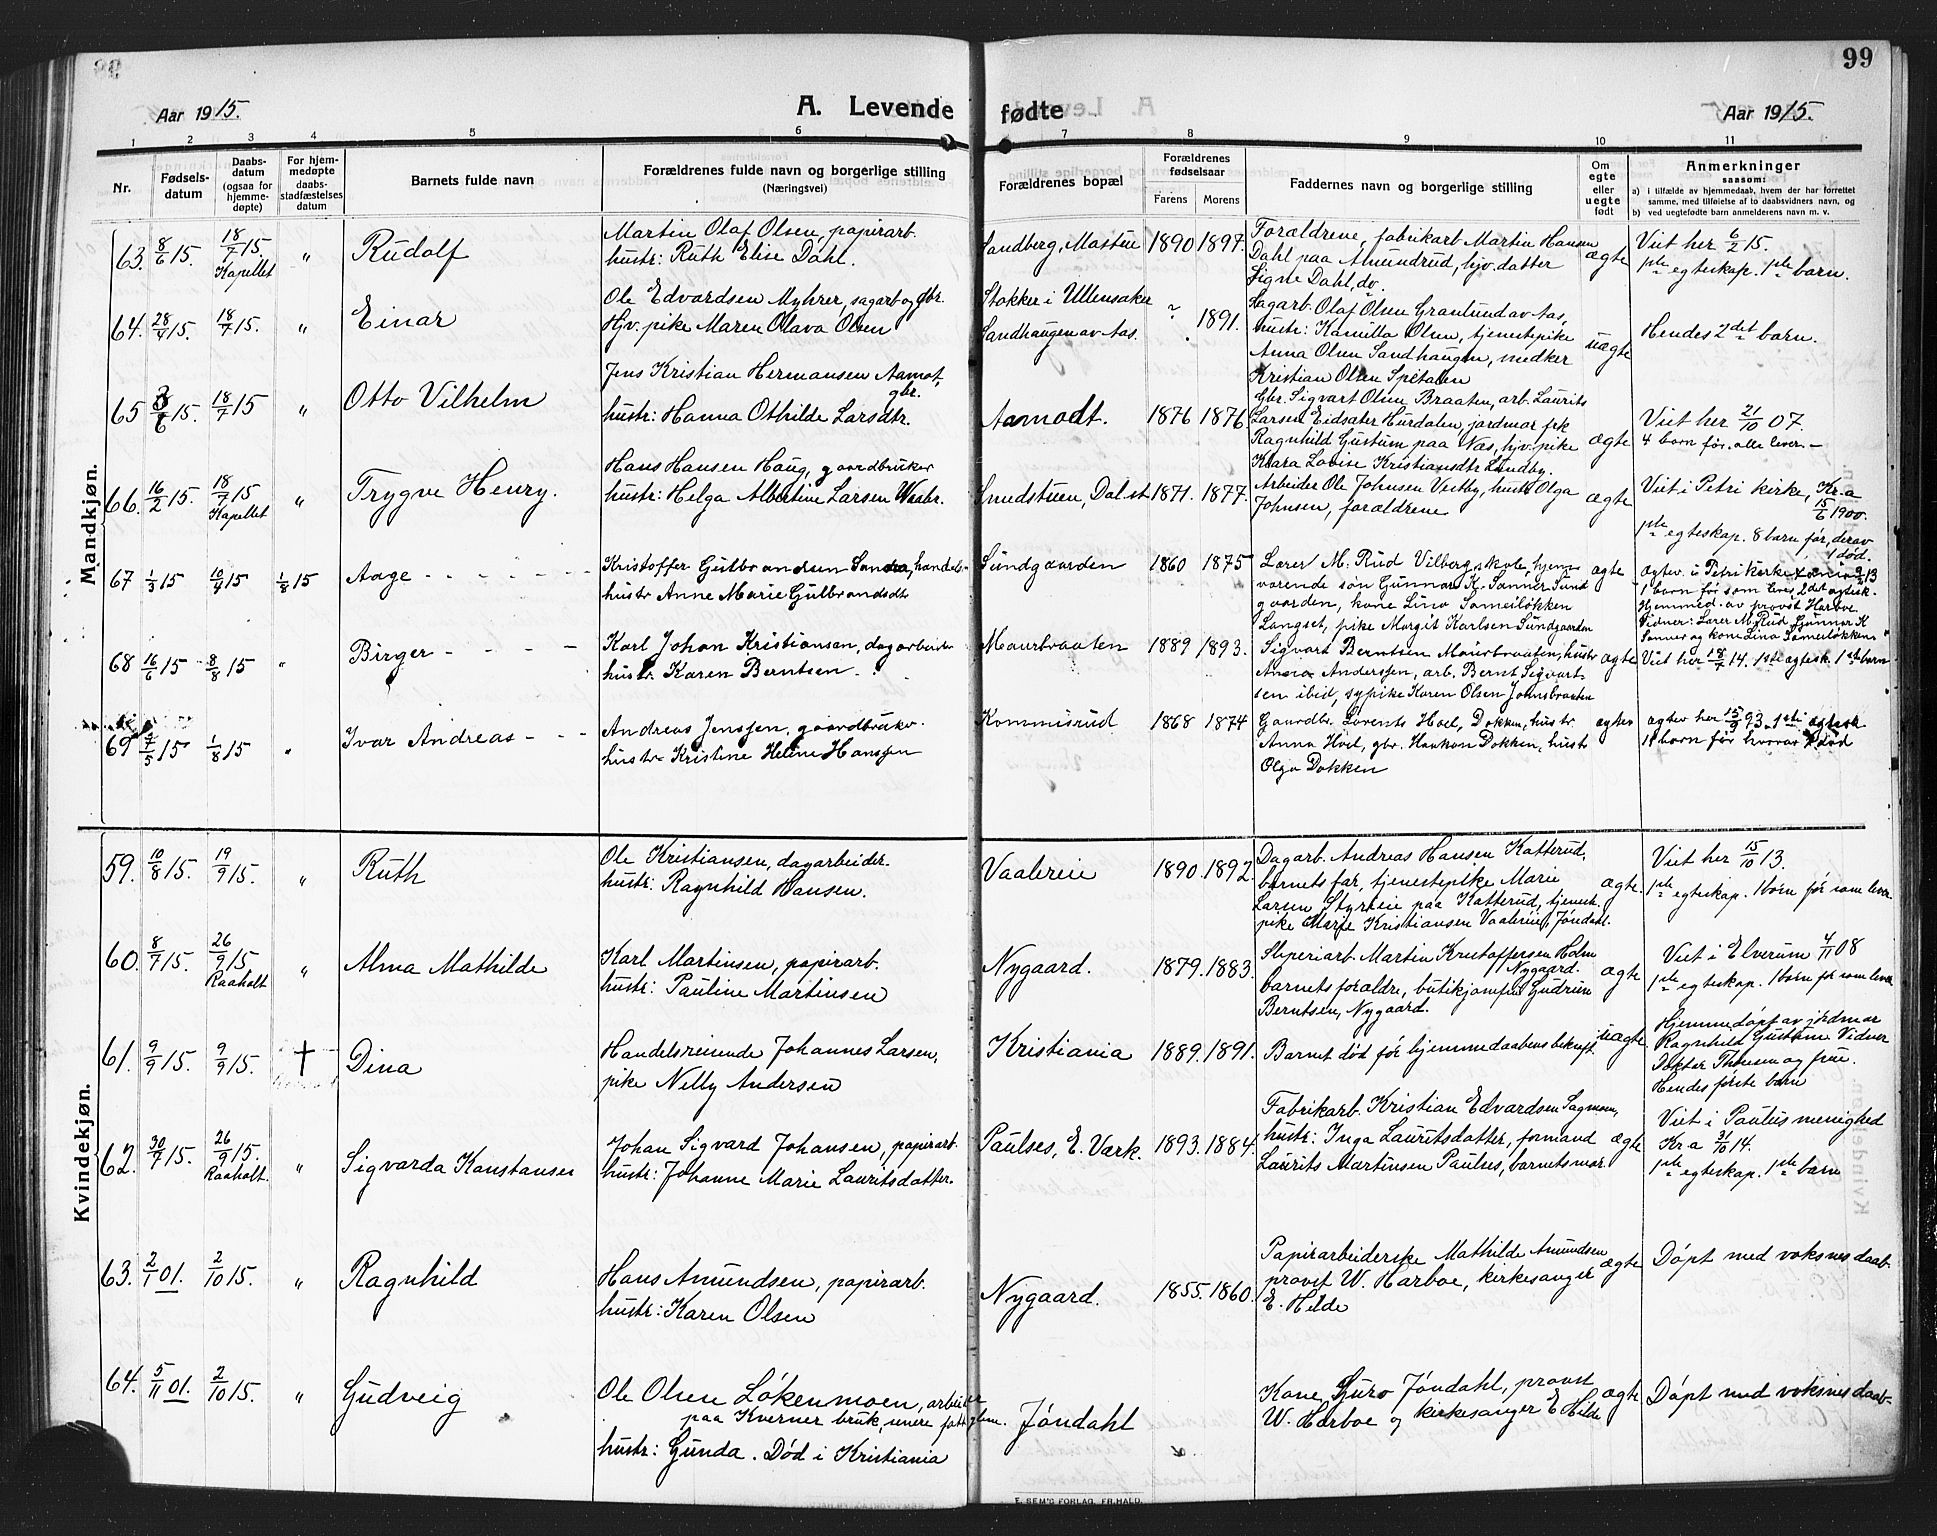 99
Aar 1915.
A. Levende fødte
Aar 1915.
1 2 3 4 5 6 7 8 9 10 11
Nr.
Fødsels-
datum
Daabs-
datum
(ogsaa for
hjemme-
døpte)
For hjem-
medøpte
daabs-
stadfæstelses
datum
Barnets fulde navn
Forældrenes fulde navn og borgerlige stilling
(Næringsvei)
Forældrenes bopæl
Forældrenes
fødselsaar
Farens
Morens
Faddernes navn og borgerlige stilling
Om
egte
eller
uegte
født
Anmerkninger
saasom:
a) i tilfælde av hjemmedaab, hvem der har forrettet
samme, med tilføielse av to daabsvidners navn, og
b) ved uegtefødte barn anmelderens navn m. v.
Mandkjøn.
63. 8/6 15. 18/7 15. Kapellet " Rudolf
Martin Olaf Olsen, papirarb.
hustr: Ruth Elise Dahl.
Sandberg, Mastue 1890 1897.
Forældrene, fabrikarb Martin Hansen
Dahl paa Amundrud, hjv. datter
Signe Dahl, do.
ægte
Viet her 6/2 15.
1ste egteskap. 1ste barn.
64. 28/4 15. 18/7 15. " Einar
Ole Edvardsen Myhrer, sagarb og gbr.
Hjv. pike Maren Olava Olsen
Stokker i Ullensaker ?
Sandhaugen av Aas. 1891.
Sagarb. Olaf Olsen Granlund av Aas,
hustr: Kamilla Olsen, tjenestepike
Anna Olsen Sandhaugen,
Kristian Olsen Spetalen
uægte
Hendes 2det barn.
65 15. 18/7 15 " Otto Vilhelm
Jens Kristian Hermansen Aamot,
gbr.
hustr: Hanna Othilde Larsdtr.
Aamodt. 1876 1876
Gbr. Sigvart Olsen Braaten, arb. Laurits
Larsen Eidsater Hurdalen, jordmor frk
Ragnhild Gustum paa Næs, hjv. pike
Klara Lovise Kristiansdtr Lundby.
ægte
Viet her 21/10 07.
4 barn før. alle lever. –
66. 16/2 15. 18/7 15 Kapellet " Trygve Henry.
Hans Hansen Haug, gaardbruker
hustr: Helga Albertine Larsen
Smedstuen, Dal st 1871. 1877.
Arbeider Ole Johnsen Vestby, hustr Olga
Johnsen, forældrene
ægte
Viet i Petri kirke, Kr.a
15/6 1900.
1ste egteskap. 8 barn før, derav
1 død.
67 1/3 15 10/4 15 1/8 15 Aage - - - - -
Kristoffer Gulbrandsen Sanner, handels-
hustr Anne Marie Gulbrandsdt
Sundgaarden 1860 1875
Lærer M. Rud Vilberg skole, hjem-
værende søn Gunnar K. Sanner Sund
gaarden, kone Lina Sameiløkken
Langset, pike Margit Karlsen Sundgaarden
ægte
ægtev. i Petri kirke 13
1 barn før som lever, 2det ægtesk.
Hjemmed. av provst Harboe
Vidner: Lærer M. Rud Gunnar K
Sanner og kone Lina Sameiløkken
68 16/6 15 8/8 15 " Birger - - - -
Karl Johan Kristiansen, dagarbeider
hustr. Karen Berntsen
Maurbraaten 1889 1893.
Sigvart Berntsen Maurbraaten, hustr
Anna Anderssen, arb. Bernt Sigvart-
sen ibid, sypike Karen Olsen Jønsbraaten
ægte
Viet her 18/7 14. 1ste ægtesk. 1ste barn
69 15 1/8 15 " Ivar Andreas - - -
Andreas Jenssen, gaardbruker.
hustr Kristine Helene Hanssen
Kommisrud 1868 1874
Gaardbr. Lorents Hoel, Dokken, hustr
Anna Hoel, gbr. Haakon Dokken, hustr
Olga Dokken
ægtev
ægtev her 15/9 93. 1ste ægtesk
barn før hvorav død
Kvindekjøn.
59. 10/8 15. 19/9 15. " Ruth
Ole Kristiansen, dagarbeider.
hustr: Ragnhild Hansen.
Vaalereie 1890. 1892.
Dagarb. Andreas Hansen Katterud,
barnets far, tjenestepike Marie
Larsen Styrieie paa Katterud, tjenest.
pike Marie Kristiansen Vaalereie, Jøndahl.
ægte.
Viet her 15/10 13.
1ste egteskap. 1 barn før som lever
60. 8/7 15. 26/9 15. Raaholt " Alma Mathilde
Karl Martinsen, papirarb.
hustr: Pauline Martinsen
Nygaard. 1879. 1883.
Sliperiarb. Martin Kristoffersen Holm
Nygaard.
barnets forældre, butikjomfru Gudrun
Berntsen, Nygaard.
ægte
Viet i Elverum 4/11 08
1ste egteskap. 1 barn før som lever
61. 9/9 15. 9/9 15. † Dina
Handelsreisende Johannes Larsen,
pike Nelly Andersen
Kristiania 1889. 1891.
Barnet død før hjemmedaabens bekræft.
uægte
Hjemmedøpt av jordmor
Ragnhild Gustum Vidner
Doktor Thoresen og frue.
Hendes første barn
62. 30/7 15. 26/9 15. Raaholt. " Sigvarda Konstanse
Johan Sigvard Johansen, papirarb.
hustr: Johanne Marie Lauritsdatter.
Paulses, E. Værk. 1893. 1884.
Fabrikarb. Kristian Edvardsen Sagmoen,
hustr: Inga Lauritsdatter, formand
Laurits Martinsen Paulses, barnets mor.
ægte
Viet i Paulus menighed
Kr a 31/10 14.
1ste egteskap. 1ste barn
63. 2/1 01. 2/10 15. " Ragnhild
Hans Amundsen, papirarb.
hustr: Karen Olsen
Nygaard. 1855. 1860.
Papirarbeiderske Mathilde Amundsen
provst W. Harboe, kirkesanger
E. Hilde
ægte
Døpt med voksnes daab.
64. 5/11 01. 2/10 15. " Gudveig
Ole Olsen Løkenmoen, arbeider
paa Kverner bruk,
hustr: Gunda. Død i Kristiania
Jøndahl
Kone Guro Jøndahl, provst
W. Harboe og kirkesanger E Hilde
ægte
Døpt med voksnes daab-
E. SEM'S FORLAG, FR.HALD.